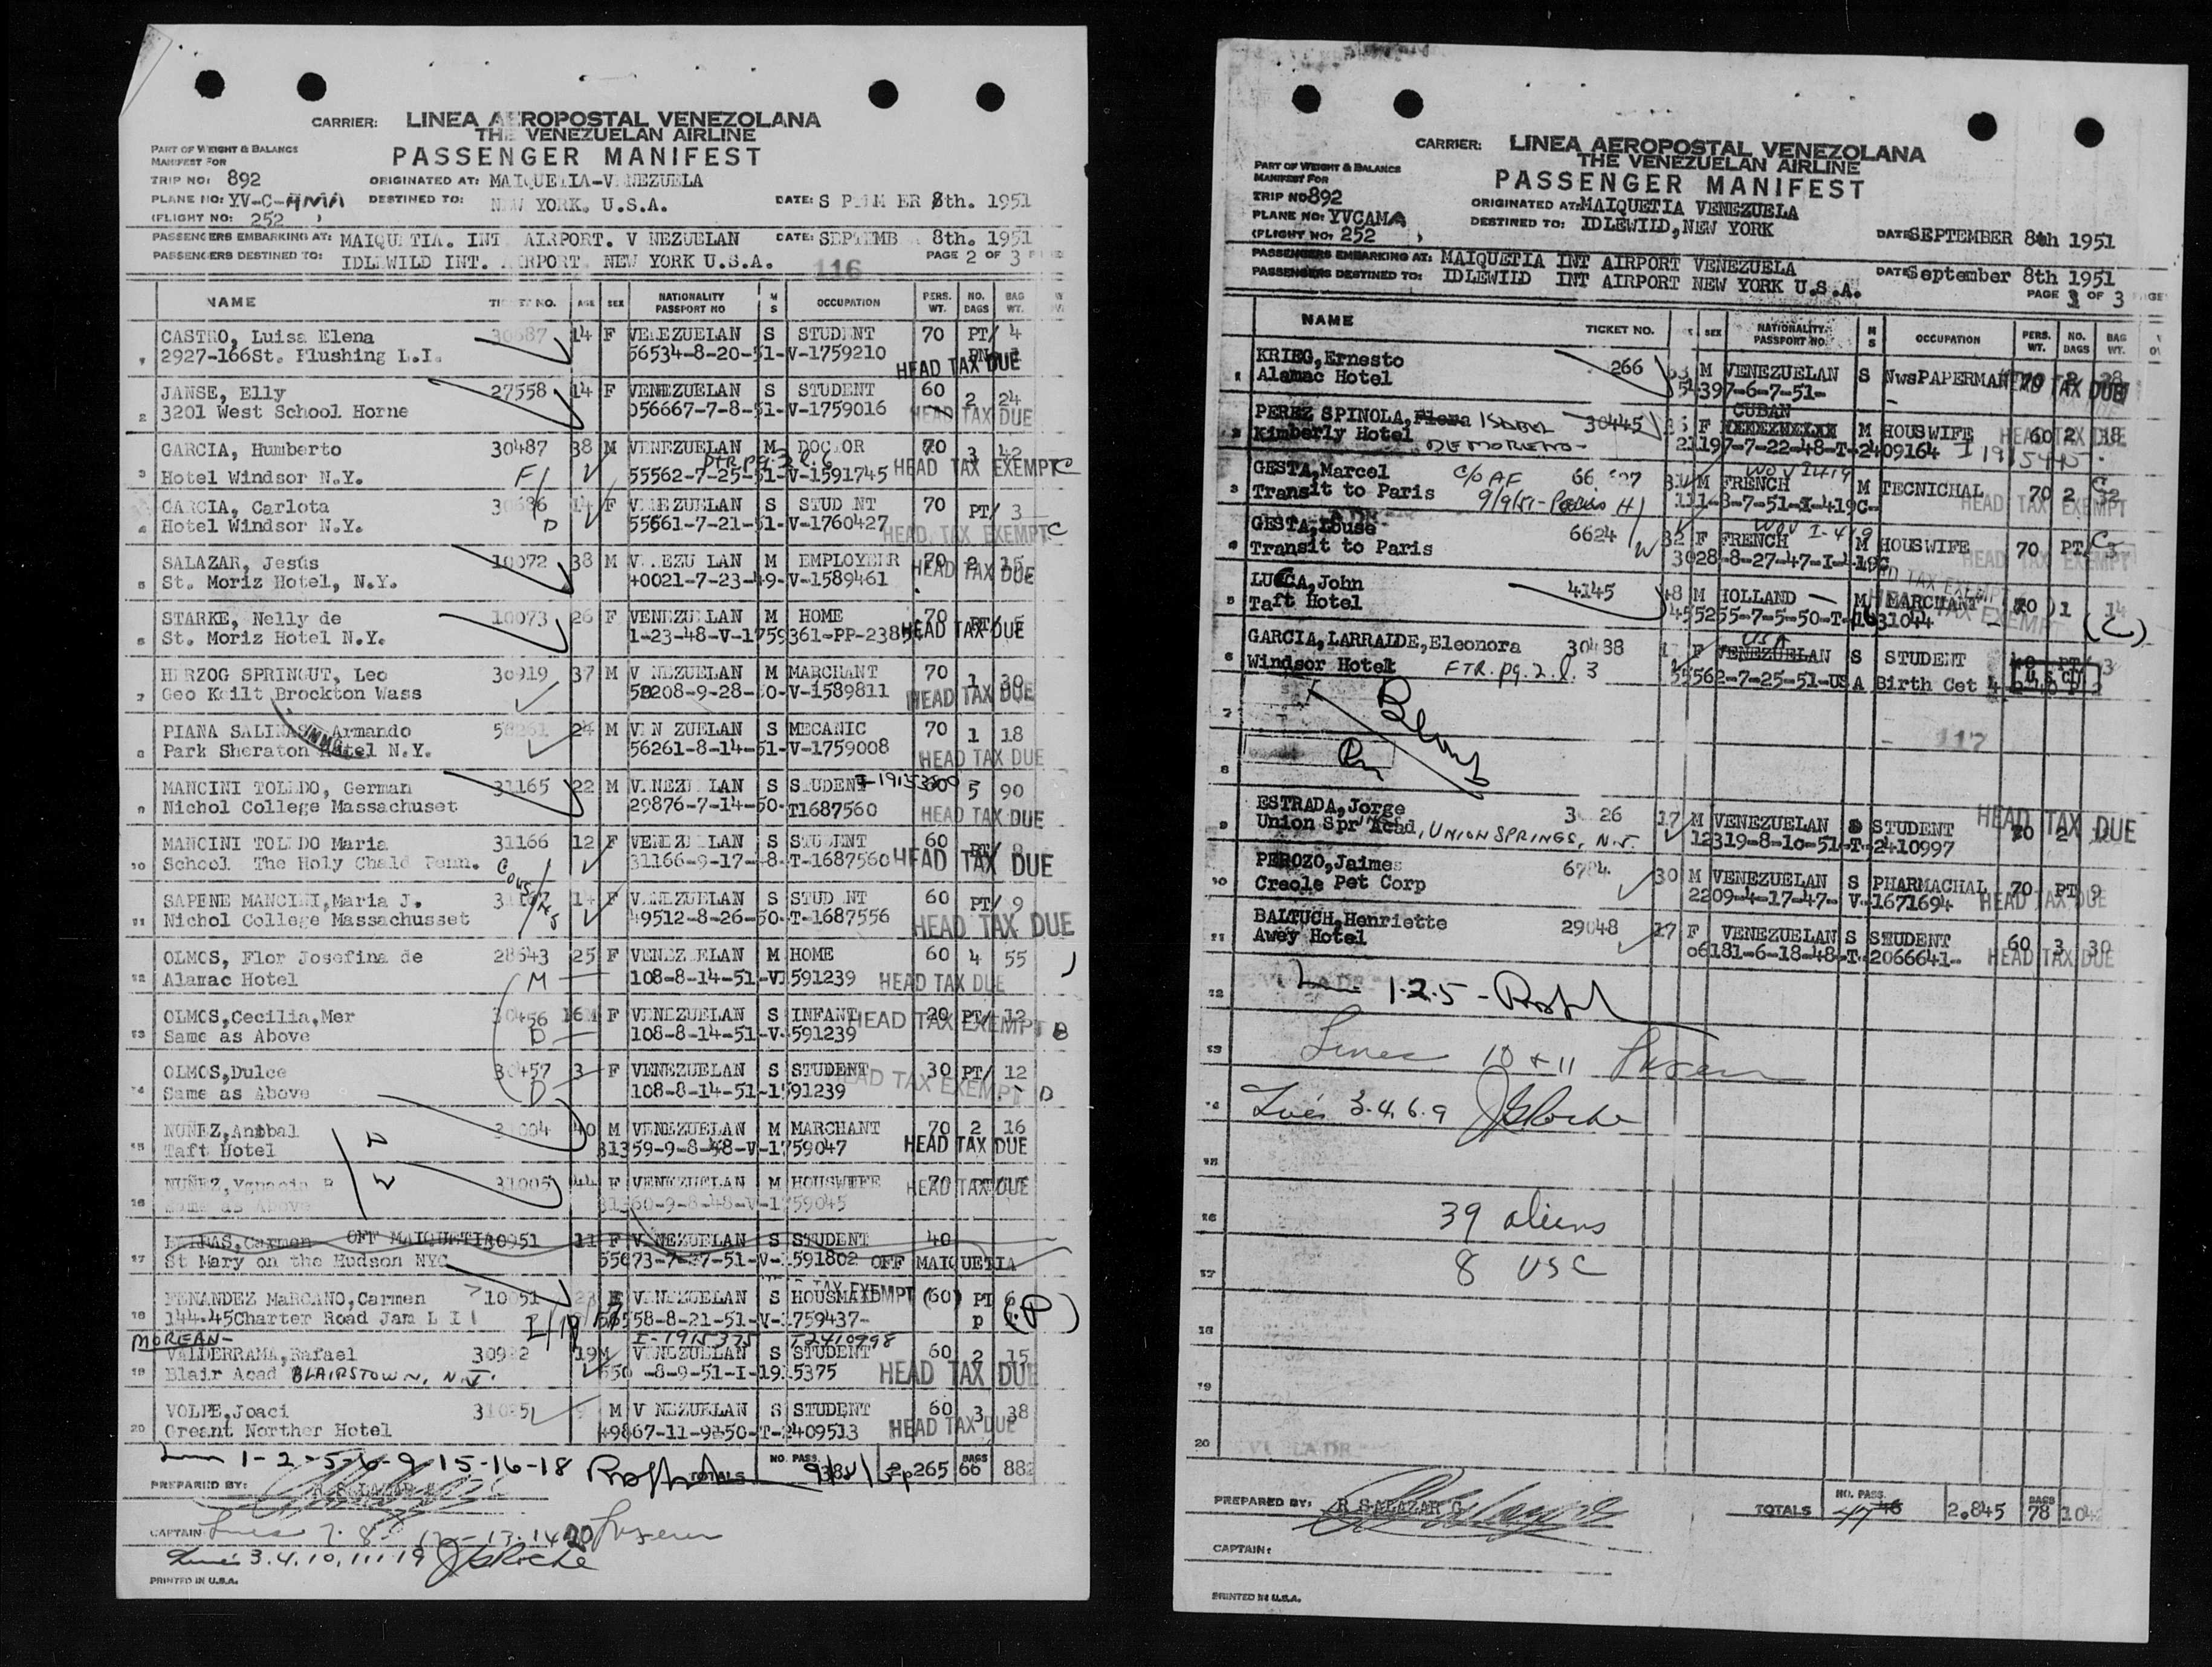 CARRIER: LINEA AEROPOSTAL VENEZOLANA
THE VENEZUELAN AIRLINE
PASSENGER MANIFEST
PART OF WEIGHT & BALANCE
MANIFEST FOR
TRIP NO: 892 ORIGINATED AT: MAIQUETIA-VENEZUELA
PLANE NO: YV-C-AMA DESTINED TO: NEW YORK, U.S.A. DATE: 8th. 1951
(FLIGHT NO: 252 )
PASSENGERS EMBARKING AT: MAIQUETIA. INT AIRPORT. VENEZUELAN DATE: SEPTEMB 8th. 1951
PASSENGERS DESTINED TO: IDLEWILD INT. AIRPORT NEW YORK U.S.A. PAGE 2 OF 3
116
NAME TICKET NO. AGE SEX NATIONALITY PASSPORT NO M S OCCUPATION PERS. WT. NO. BAGS BAG WT.
1 CASTRO, Luisa Elena 30687 14 F VENEZUELAN S STUDENT 70 PT/ 4
2927-166St. Flushing L.I. 56534-8-20-51-V-1759210 HEAD TAX DUE
2 JANSE, Elly 27558 14 F VENEZUELAN S STUDENT 60 2 24
3201 West School Horne 056667-7-8-51-V-1759016 HEAD TAX DUE
3 GARCIA, Humberto 30487 38 M VENEZUELAN M DOCTOR 70 3 42
Hotel Windsor N.Y. 55562-7-25-51-V-1591745 HEAD TAX EXEMPT C
4 GARCIA, Carlota 30686 14 F VENEZUELAN S STUDENT 70 PT/ 3
Hotel Windsor N.Y. D 55561-7-21-51-V-1760427 HEAD TAX EXEMPT C
5 SALAZAR, Jesús 10072 38 M VENEZUELAN M EMPLOYEER 70 2 15
St. Moriz Hotel, N.Y. 40021-7-23-49-V-1589461 HEAD TAX DUE
6 STARKE, Nelly de 10073 26 F VENEZUELAN M HOME 70 PT/
St. Moriz Hotel N.Y. 1-23-48-V-1759361-PP-2385 HEAD TAX DUE
7 HERZOG SPRINGUT, Leo 30919 37 M VENEZUELAN M MARCHANT 70 1 30
Geo Keilt Brockton Wass 58208-9-28-50-V-1589811 HEAD TAX DUE
8 PIANA SALINAS, Armando 24 M VENEZUELAN S MECANIC 70 1 18
Park Sheraton Hotel N.Y. 56261-8-14-51-V-1759008 HEAD TAX DUE
9 MANCINI TOLEDO, German 31165 22 M VENEZUELAN S STUDENT 60 5 90
Nichol College Massachuset 29876-7-14-50-T1687560 HEAD TAX DUE
10 MANCINI TOLEDO Maria 31166 12 F VENEZUELAN S STUDENT 60 PT/ 8
School The Holy Chald Penn. 31166-9-17-48-T-1687560 HEAD TAX DUE
11 SAPENE MANCINI, Maria J. 14 F VENEZUELAN S STUDENT 60 PT/ 9
Nichol College Massachusset 49512-8-26-50-T-1687556 HEAD TAX DUE
12 OLMOS, Flor Josefina de 28543 25 F VENEZUELAN M HOME 60 4 55
Alamac Hotel M 108-8-14-51-V1591239 HEAD TAX DUE
13 OLMOS,Cecilia,Mer 30456 16M F VENEZUELAN S INFANT 20 PT/ 12
Same as Above D 108-8-14-51-V-591239 HEAD TAX EXEMPT B
14 OLMOS,Dulce 30457 3 F VENEZUELAN S STUDENT 30 PT/ 12
Same as Above D 108-8-14-51-1591239 HEAD TAX EXEMPT D
15 NUÑEZ,Anibal 31004 40 M VENEZUELAN M MARCHANT 70 2 16
Taft Hotel 31359-9-8-48-V-1759047 HEAD TAX DUE
16 NUÑEZ,Ygnacia P 31005 44 F VENEZUELAN M HOUSWIFE 70 HEAD TAX DUE
Same as Above 31360-9-8-48-V-1759045
17 Carmen OFF MAIQUETIA 30951 11 F VENEZUELAN S STUDENT 40
St Mary on the Hudson NYC 55673-7-27-51-V-1591802 OFF MAIQUETIA
18 FENANDEZ MARCANO,Carmen 10051 F VENEZUELAN S HOUSMAID (60) PT 6
144.45Charter Road Jam L I 56558-8-21-51-V-1759437- (P)
MOREAN- I-1915375 T2410998
19 VALDERRAMA,Rafael 30922 19 M VENEZUELAN S STUDENT 60 2 15
Blair Acad BLAIRSTOWN, N.J. -8-9-51-I-1915375 HEAD TAX DUE
20 VOLPE,Joaci M VENEZUELAN S STUDENT 60 3 38
Greant Norther Hotel 49867-11-9-50-T-2409513 HEAD TAX DUE
1-2-5-6-9-15-16-18 TOTALS NO. PASS. 265 BAGS 66 882
PREPARED BY:
CAPTAIN
Lines 3.4.10.11.19 JGRoche
PRINTED IN U.S.A.
CARRIER: LINEA AEROPOSTAL VENEZOLANA
THE VENEZUELAN AIRLINE
PASSENGER MANIFEST
PART OF WEIGHT & BALANCE
MANIFEST FOR
TRIP NO 892 ORIGINATED AT: MAIQUETIA VENEZUELA
PLANE NO: YVCAMA DESTINED TO: IDLEWILD, NEW YORK DATE SEPTEMBER 8th 1951
(FLIGHT NO: 252 )
PASSENGERS EMBARKING AT: MAIQUETIA INT AIRPORT VENEZUELA DATE September 8th 1951
PASSENGERS DESTINED TO: IDLEWILD INT AIRPORT NEW YORK U.S.A. PAGE 3 OF 3
NAME TICKET NO. SEX NATIONALITY PASSPORT NO. M S OCCUPATION PERS. WT. NO. BAGS BAG WT.
1 KRIEG,Ernesto 266 M VENEZUELAN S NwsPAPERMAN 70 2 28
Alamac Hotel 54397-6-7-51- HEAD TAX DUE
CUBAN
2 PEREZ SPINOLA, ISABEL 30445 F M HOUSWIFE 60 2 18
Kimberly Hotel DE MORENO- 21197-7-22-48-T-2409164 I 1915445 HEAD TAX DUE
3 GESTA,Marcel C/O AF M FRENCH M TECNICHAL 70 2 32
Transit to Paris 9/9/51-Paris 111-8-7-51-I-419C- HEAD TAX EXEMPT
4 GESTA,Louse 6624 32 F FRENCH M HOUSWIFE 70 PT/
Transit to Paris W 3028-8-27-47-I-419C HEAD TAX EXEMPT
5 LUCCA,John 4145 48 M HOLLAND M MARCHANT 70 1 14
Taft Hotel 455255-7-5-50-T-1631044 HEAD TAX EXEMPT (C)
USA
6 GARCIA,LARRALDE,Eleonora 30488 F VENEZUELAN S STUDENT 40 PT/ 3
Windsor Hotel FTR. pg. 2. l. 3 55562-7-25-51-USA Birth Cet U.S.C.
7
117
8
9 ESTRADA,Jorge 17 M VENEZUELAN S STUDENT 70 2
Union Spr Acad, UNION SPRINGS, N.J. 12319-8-10-51-T-2410997 HEAD TAX DUE
10 PEROZO,Jaimes 6784 30 M VENEZUELAN S PHARMACHAL 70 PT 9
Creole Pet Corp 2209-4-17-47- V-1671694 HEAD TAX DUE
11 BALTUCH,Henriette 29048 17 F VENEZUELAN S STUDENT 60 3 30
Awey Hotel 06181-6-18-48-T-2066641- HEAD TAX DUE
12 1.2.5-
13 Lines 10 + 11
14 Lines 3.4.6.9 JGRoche
15
16 39 aliens
17 8 USC
18
19
20
PREPARED BY: R SALAZAR G TOTALS NO. PASS. 47 2.845 BAGS 78
CAPTAIN:
PRINTED IN U.S.A.